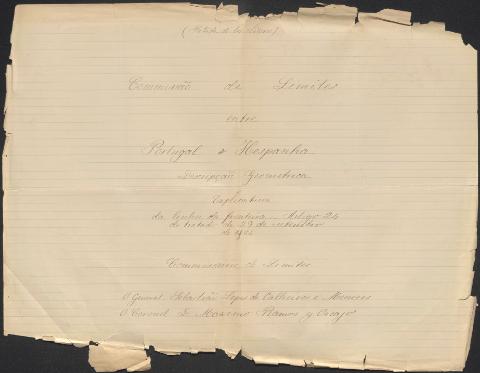 Commissão de Limites
entre
Portugal e Hespanha
Descripção Geometrica
Explicativa
da linha da fronteira Artigo 24
do tratado de 29 de setembro
de
Commissarios de Limites
O General Sebastião Lopes de Calheiros e Menezes
O Coronel D. Maximo Ramos y